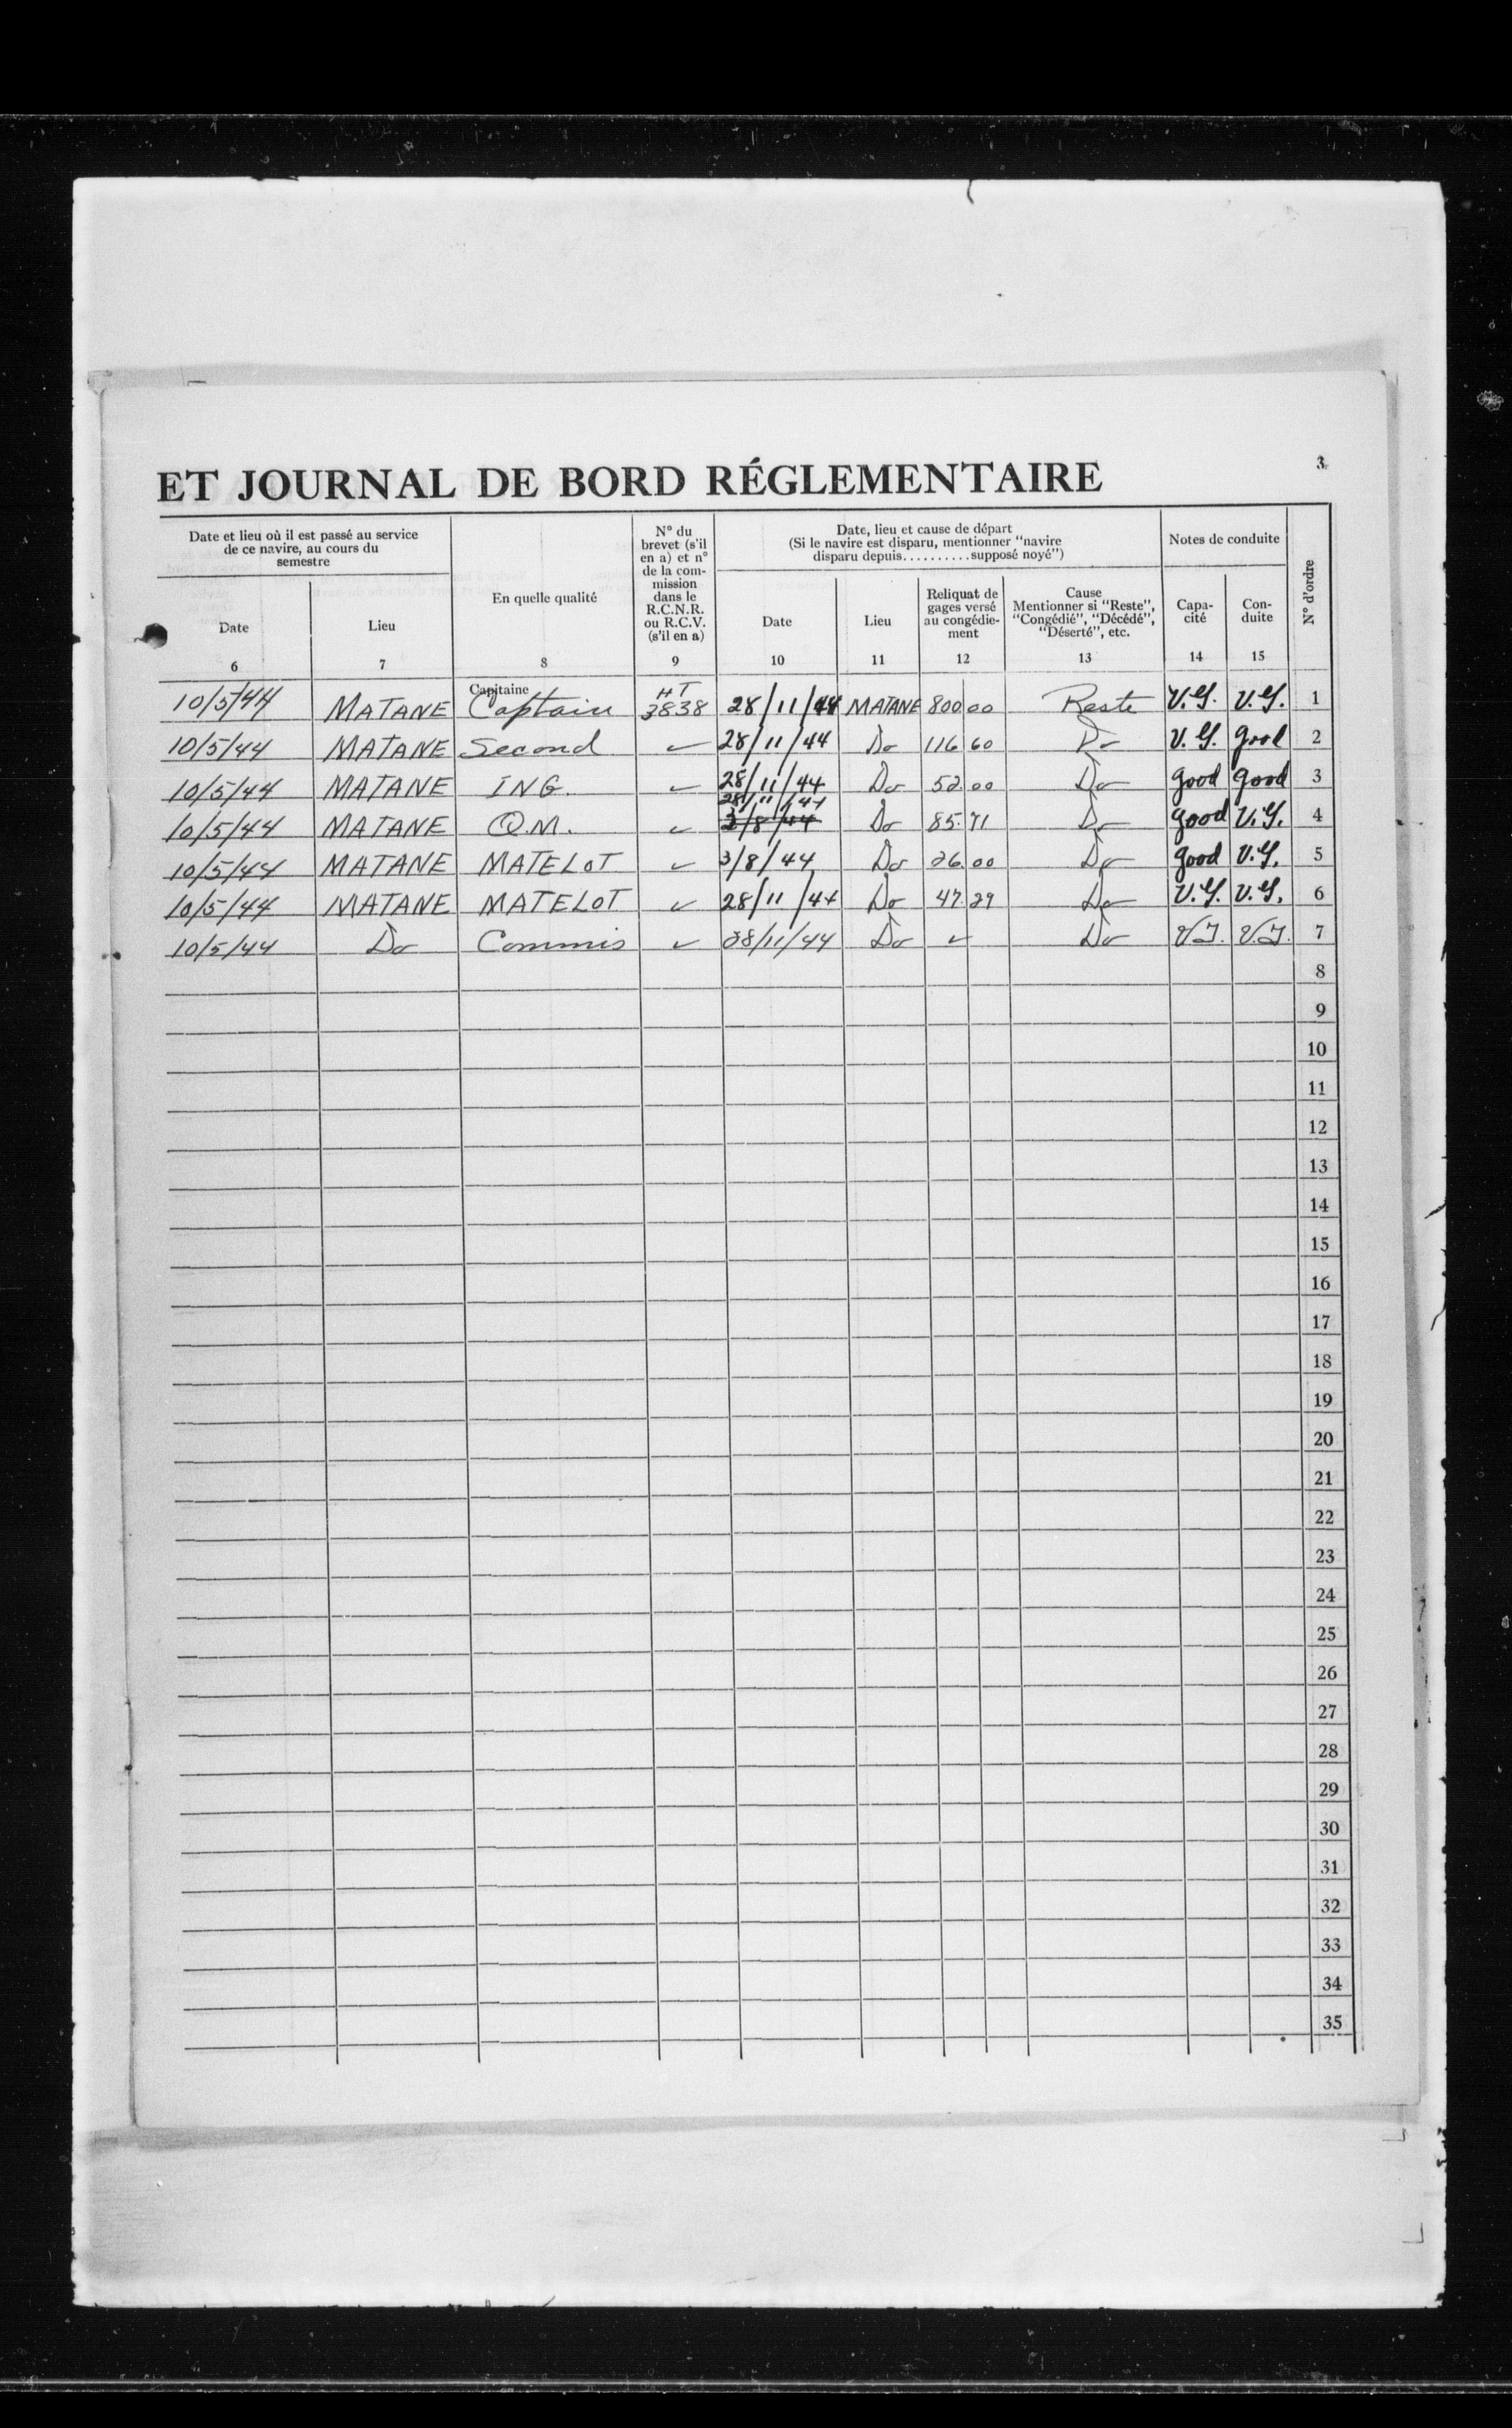 ET JOURNAL DE BORD RÉGLEMENTAIRE
3
Date et lieu où il est passé au service
de ce navire, au cours du
semestre
Date
6
Lieu
7
En quelle qualité
8
N° du
brevet (s'il
en a) et n°
de la com-
mission
dans le
R.C.N.R.
ou R.C.V.
(s'il en a)
9
Date, lieu et cause de départ
(Si le navire est disparu, mentionner "navire
disparu depuis..........supposé noyé")
Date
10
Lieu
11
Reliquat de
gages versé
au congédie-
ment
12
Cause
Mentionner si "Reste",
"Congédié", "Décédé",
"Déserté", etc.
13
Notes de conduite
Capa-
cité
14
Con-
duite
15
N° d'ordre
Capitaine HT
10/5/44 MATANE Captain 3838 28/11/44 MATANE 800 00 Reste V.G. V.G. 1
10/5/44 MATANE Second ✓ 28/11/44 Do 116 60 Do V.G. good 2
10/5/44 MATANE ING. ✓ 28/11/44 Do 52.00 Do good good 3
28/11/44
10/5/44 MATANE Q.M. ✓ 3/8/44 Do 85.71 Do good V.G. 4
10/5/44 MATANE MATELOT ✓ 3/8/44 Do 26.00 Do good V.G. 5
10/5/44 MATANE MATELOT ✓ 28/11/44 Do 47.29 Do V.G. V.G. 6
10/5/44 Do Commis ✓ 28/11/44 Do ✓ Do V.G. V.G. 7
8
9
10
11
12
13
14
15
16
17
18
19
20
21
22
23
24
25
26
27
28
29
30
31
32
33
34
35